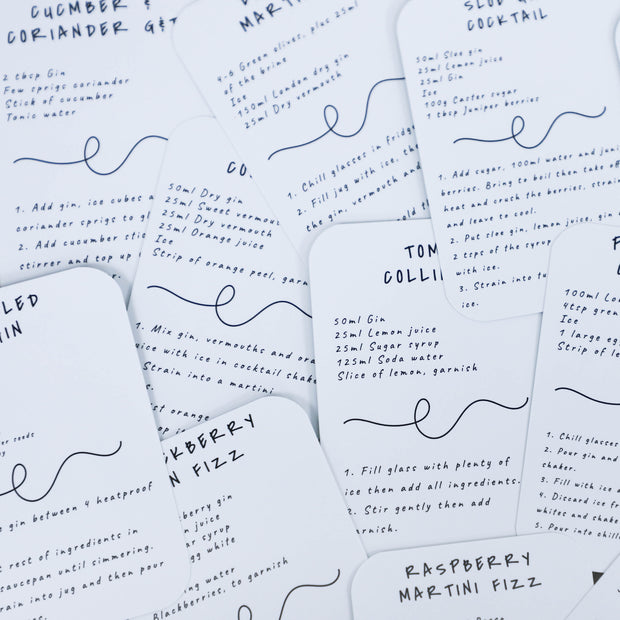 CUCMBER &
CORIANDER G&T
2 tbsp Gin
Few sprigs coriander
Stick of cucumber
Tonic water
1. Add gin, ice cubes a
coriander sprigs to gl
2. Add cucumber stic
stirrer and top up
MARTIN
4-6 Green olives, plus 25ml
of the brine
Ice
150ml London dry gin
25ml Dry vermouth
1. Chill glasses in fridge
2. Fill jug with ice, the
the gin, vermouth and
SLOE G
COCKTAIL
50ml Sloe gin
25ml Lemon juice
25ml Gin
Ice
100g Caster sugar
1 tbsp Juniper berries
1. Add sugar, 100ml water and juni
berries. Bring to boil then take off
heat and crush the berries, strain
and leave to cool.
2. Put sloe gin, lemon juice, gin
2 tsps of the syrup
with ice.
3. Strain into tu
ice.
CO
50ml Dry gin
25ml Sweet vermout
25ml Dry vermouth
25ml Orange juice
Ice
Strip of orange peel, garn
1. Mix gin, vermouths and ora
juice with ice in cocktail shake
Strain into a martini
orange
TOM
COLLI
50ml Gin
25ml Lemon juice
25ml Sugar syrup
125ml Soda water
Slice of lemon, garnish
1. Fill glass with plenty of
ice then add all ingredients.
2. Stir gently then add
garnish.
F
100ml Lo
4tsp gren
Ice
1 large eg
Strip of le
1. Chill glasses
2. Pour gin and
shaker.
3. Fill with ice a
4. Discard ice fr
whites and shake
5. Pour into chill
LED
IN
er seeds
e gin between 4 heatproof
rest of ingredients in
saucepan until simmering.
rain into jug and then pour
CKBERRY
N FIZZ
berry gin
n juice
ar syrup
gg white
ng water
Blackberries, to garnish
RASPBERRY
MARTINI FIZZ